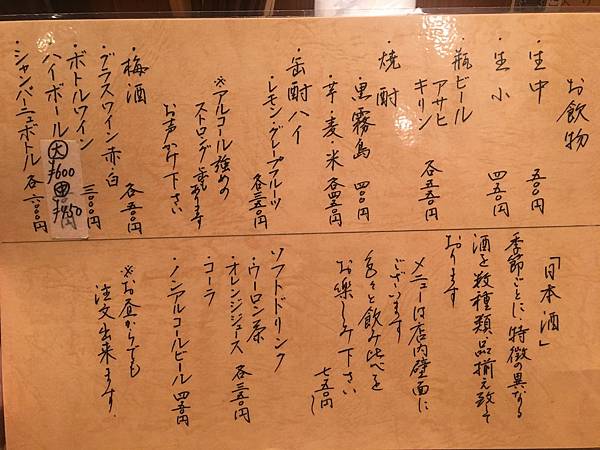 お飲物
・生中 五〇〇円
・生小 四五〇円
・瓶ビール
アサヒ
キリン 各五五〇円
・焼酎
・黒霧島 四〇〇円
・芋・麦・米 各四五〇円
・缶酎ハイ
・レモン・グレープフルーツ 各三五〇円
※アルコール強めの
ストロングも有ります
お声かけ下さい
・梅酒 各五〇〇円
・グラスワイン赤・白
・ボトルワイン 三〇〇〇円
ハイボール 大 ¥600 中 ¥450
・シャンパーニュボトル 各六〇〇〇円
「日本酒」
季節ごとに、特徴の異なる
酒を数種類品揃え致して
おります
メニューは店内壁面に
ございます
色々と飲み比べを
お楽しみ下さい
七五〇円〜
ソフトドリンク
・ウーロン茶
・オレンジジュース 各三五〇円
・コーラ
・ノンアルコールビール 四五〇円
※お昼からでも
注文出来ます。